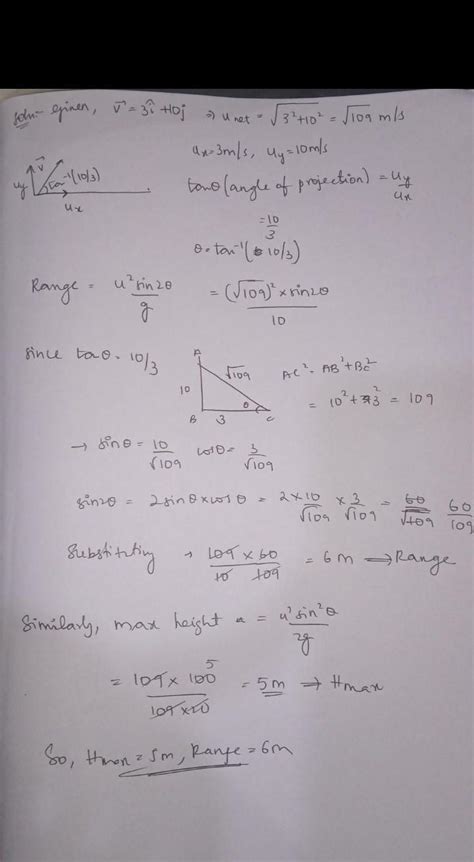 Soln:- Given, v⃗ = 3î + 10j ⇒ u net = √3²+10² = √109 m/s
ux = 3m/s, uy = 10m/s
v⃗
tan⁻¹(10/3)
uy
ux
tanθ (angle of projection) = uy/ux
= 10/3
θ = tan⁻¹(10/3)
Range = u² sin2θ / g = (√109)² × sin2θ / 10
Since tanθ = 10/3
A
10
√109
B 3 θ C
AC² = AB² + BC²
= 10² + 3² = 109
→ sinθ = 10/√109 cosθ = 3/√109
sin2θ = 2sinθ × cosθ = 2 × 10/√109 × 3/√109 = 60/√109 60/109
Substituting → 109 × 60 / 10 109 = 6m ⇒ Range
Similarly, max height = u² sin²θ / 2g
= 109 × 100 5 / 109 × 20 = 5m ⇒ Hmax
So, Hmax = 5m, Range = 6m